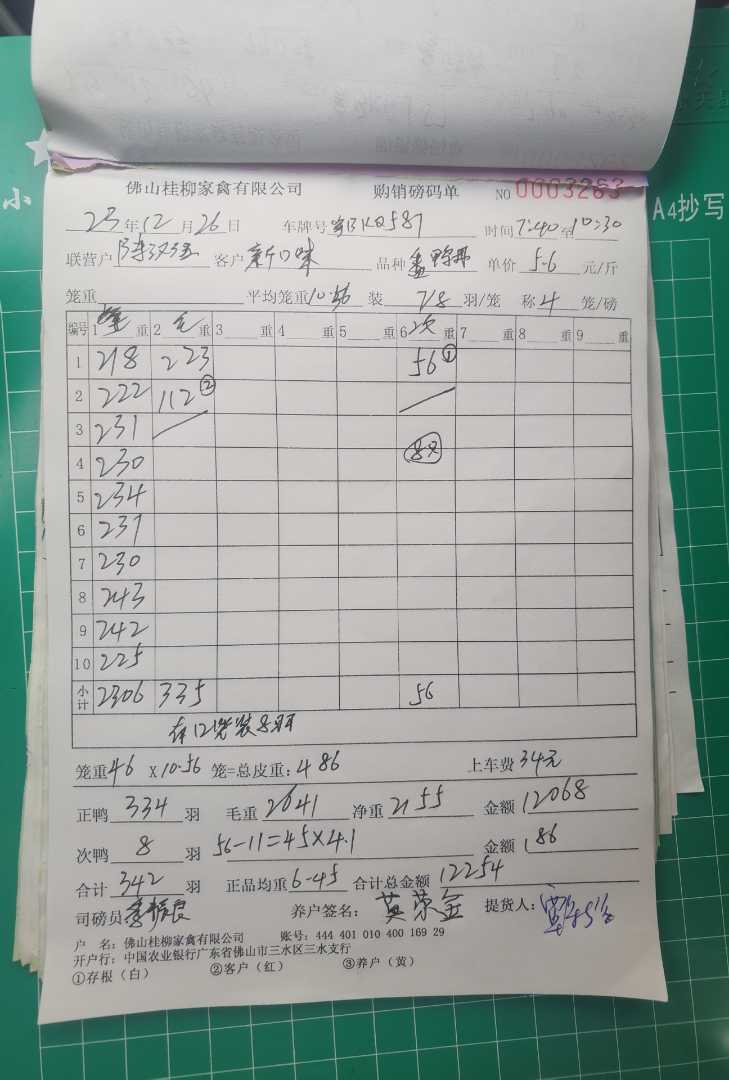 佛山桂柳家禽有限公司 购销磅码单 NO 0003263
23年12月26日 车牌号 KQ587 时间 7:40至10:30
联营户 客户 新口味 品种 单价 5.6 元/斤
笼重 平均笼重10.56 装 7/8 羽/笼 称 4 笼/磅
编号 1 重 2 毛 重 3 重 4 重 5 重 6 次 重 7 重 8 重 9 重
1 218 223 56①
2 222 112②
3 231
4 230 8只
5 234
6 231
7 230
8 243
9 242
10 225
小计 2306 335 56
有12笼装8羽
笼重46 X10.56 笼=总皮重:486 上车费 34元
正鸭 334 羽 毛重 2641 净重 2155 金额 12068
次鸭 8 羽 56-11=45×4.1 金额 186
合计 342 羽 正品均重 6-45 合计总金额 12254
司磅员 养户签名: 莫荣金 提货人:
户 名: 佛山桂柳家禽有限公司 账号: 444 401 010 400 169 29
开户行: 中国农业银行广东省佛山市三水区三水支行
①存根(白) ②客户(红) ③养户(黄)
小
A4抄写